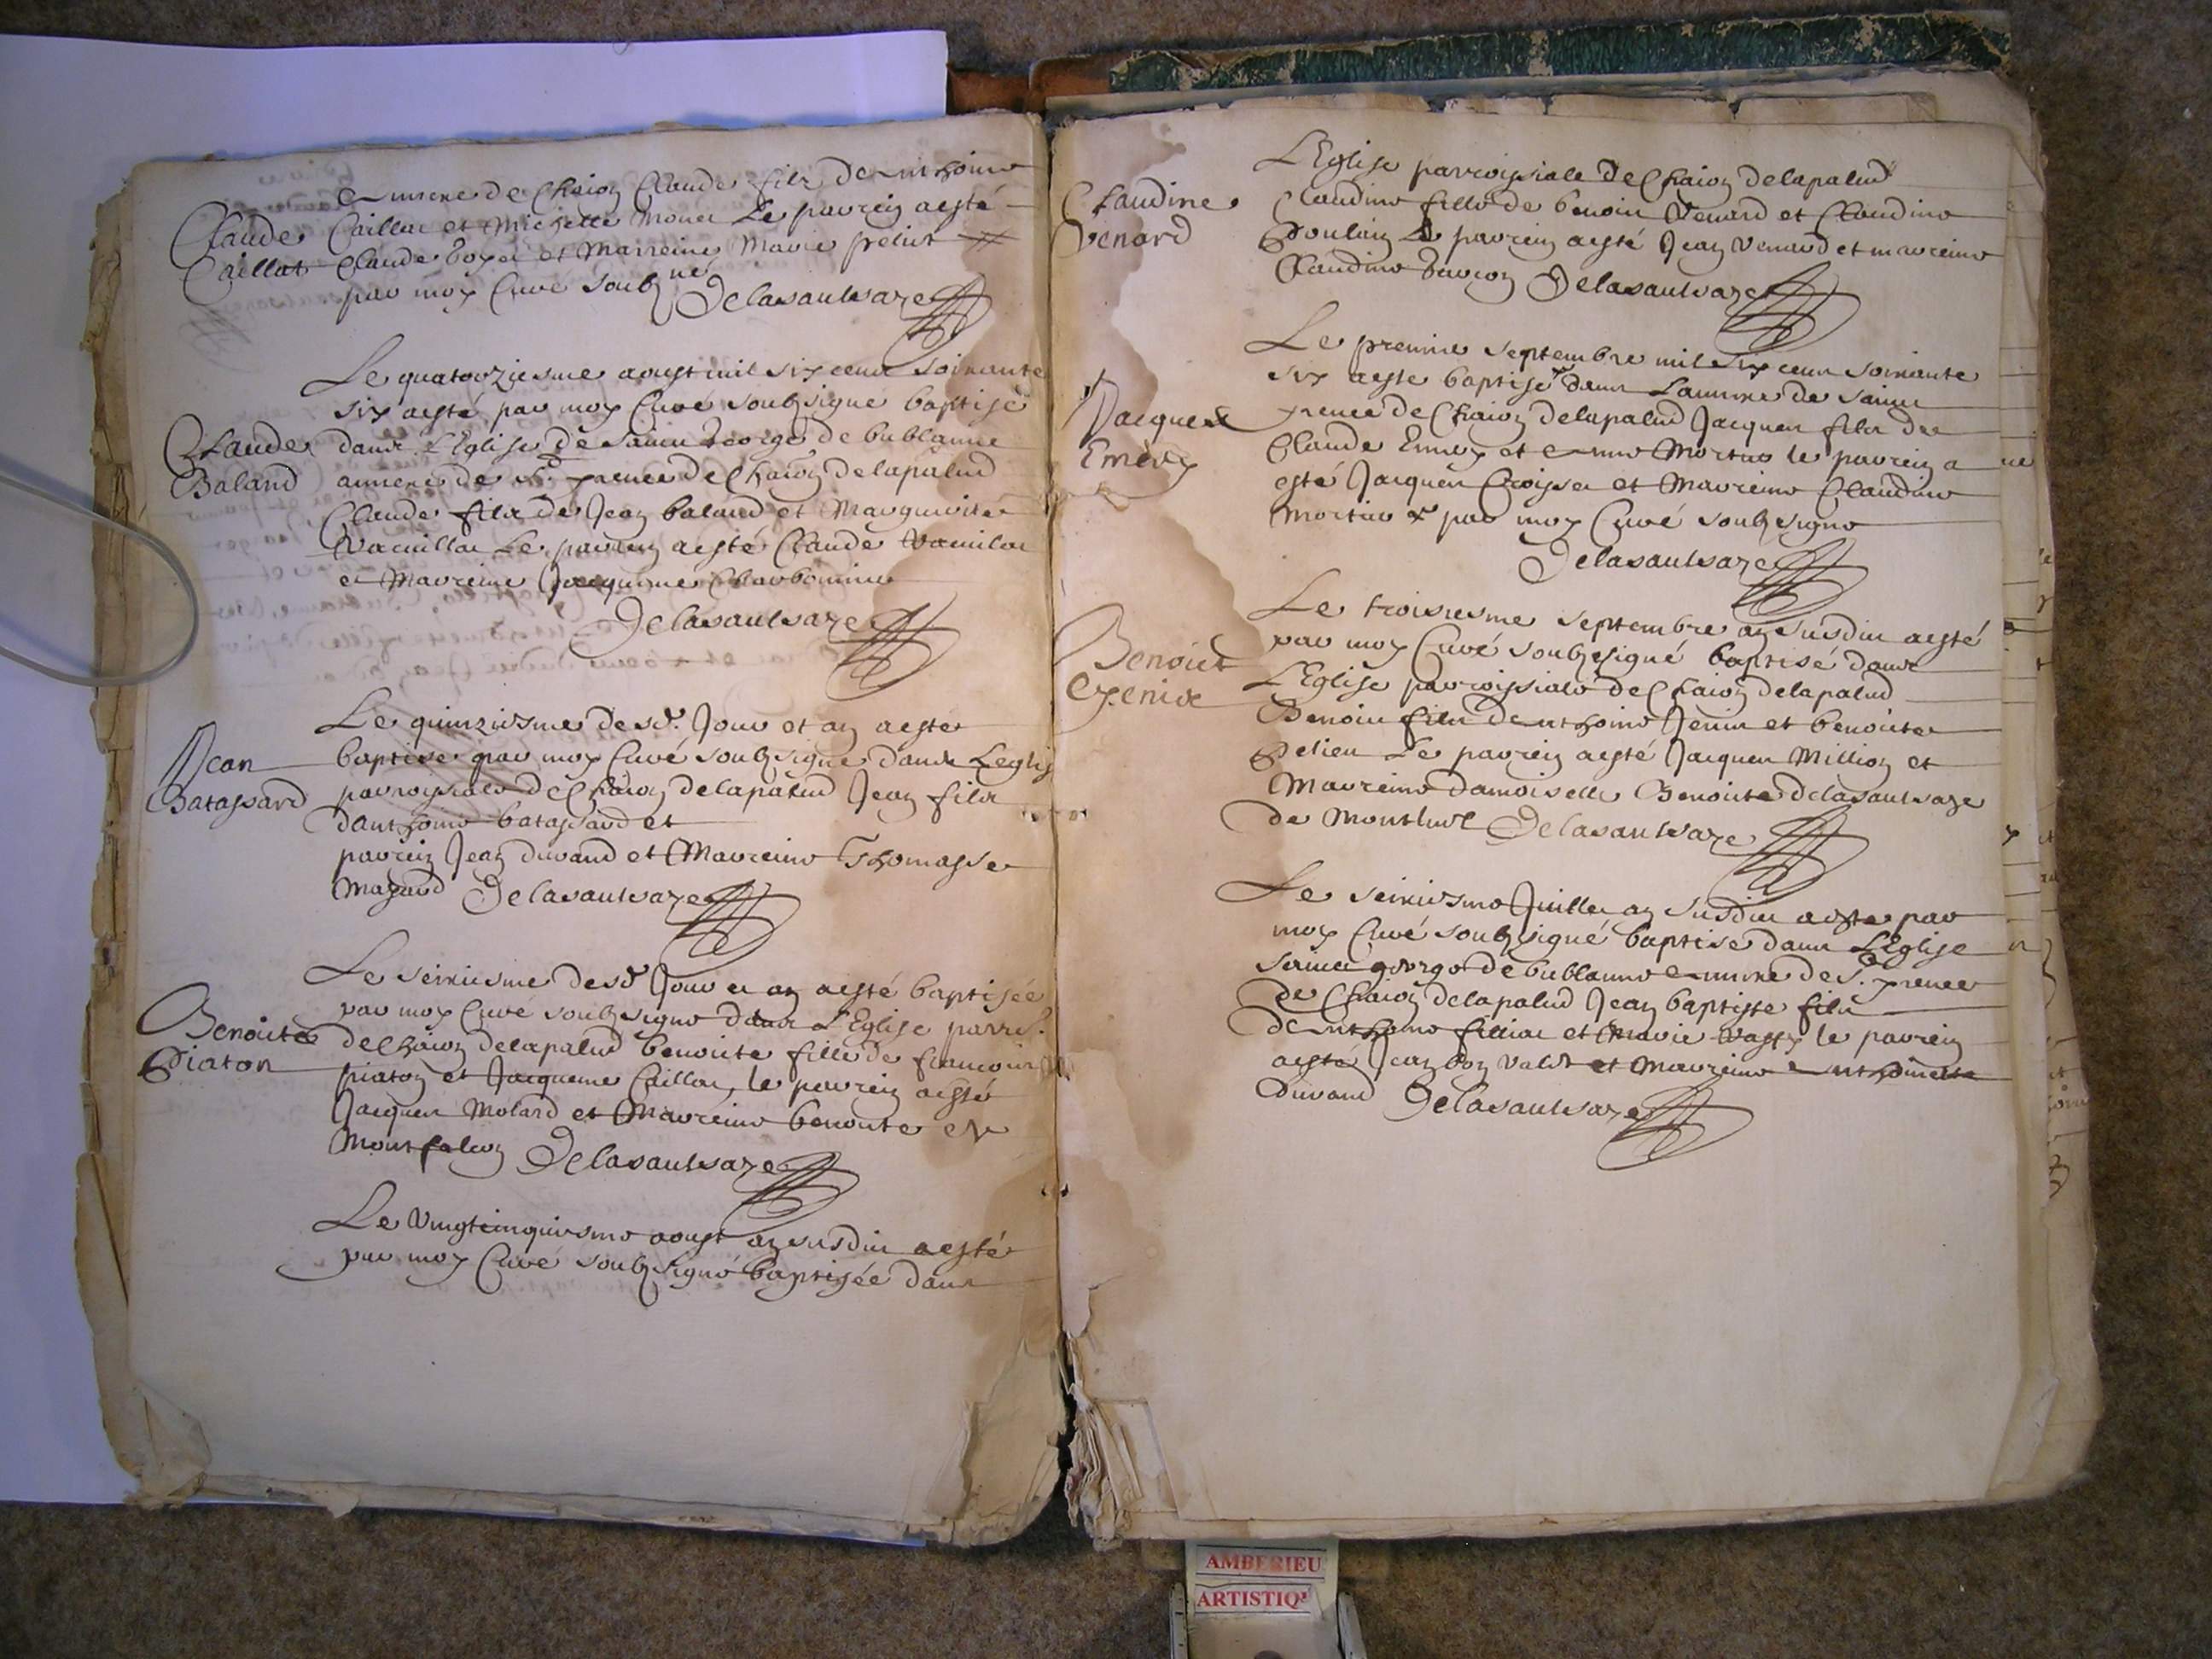 Annexe de Chaion Claude filz de Anthoine
Claude Caillat
Caillat et Michelle Monet Le parrein a esté
Claude boyer et Marreine Marie
par moy Curé soubz.né Delasaulsaze
Le quatorziesme aoust mil six cent soixante
six a esté par moy Curé soubzsigné baptisé
Claude Baland
dans L'Eglise de Sainct George de bublanne
annexe de St. prenee de Chaion delapalud
Claude filz de Jean baland et Marguerite
Le parrein a esté Claude
et Marreine Jacqueme
Delasaulsaze
Le quinziesme desd. Jour et an a esté
Jean Batassard
baptisé par moy Curé soubzsigné dans Leglis
parroissiale de Chaion delapalud Jean filz
danthoine batassard et
parrein Jean durand et Marreine Thomasse
Mazard Delasaulsaze
Le seiziesme desd Jour et an a esté baptisée
Benoite Piaton
par moy Curé soubzsigné dans L'Eglise parris.
de Chaion delapalud benoite fille de francois
piaton et Jacqueme Caillat, le parrein a esté
Jacques Molard et Marreine benoite
Montfalcon Delasaulsaze
Le vingtcinquiesme aoust an susdict a esté
par moy Curé soubzsigné baptisée dans
L'Eglise parroissiale de Chaion delapalud
Claudine Venard
Claudine fille de benoict Venard et Claudine
Poulain Le parrein a esté Jean Venard et marreine
Claudine Delasaulsaze
Le premier Septembre mil six cens soixante
six a esté baptisé dans Lannexe de Sainct
Jacques Emery
prenee de Chaion delapalud Jacques filz de
Claude Emery et Anne le parrein a
esté Jacques Croisset et Marreine Claudine
par moy Curé soubzsigné
Delasaulsaze
Le troisiesme Septembre an susdict a esté
Benoict Jenin
par moy Curé soubzsigné baptisé dans
L'Eglise parroissiale de Chaion delapalud
Benoict filz de Anthoine Jenin et benoite
Pelieu Le parrein a esté Jacques Million et
Marreine damoiselle Benoite delasaulsaze
de Montluel Delasaulsaze
Le seiziesme Juillet an susdict a esté par
moy Curé soubzsigné baptisé dans L'Eglise
Sainct george de bublanne Annexe de St. prenee
de Chaion delapalud Jean baptiste filz
de Anthoine filliat et Marie le parrein
a esté Jean bon valet et Marreine Anthoinette
durand Delasaulsaze
AMBERIEU
ARTISTIQ